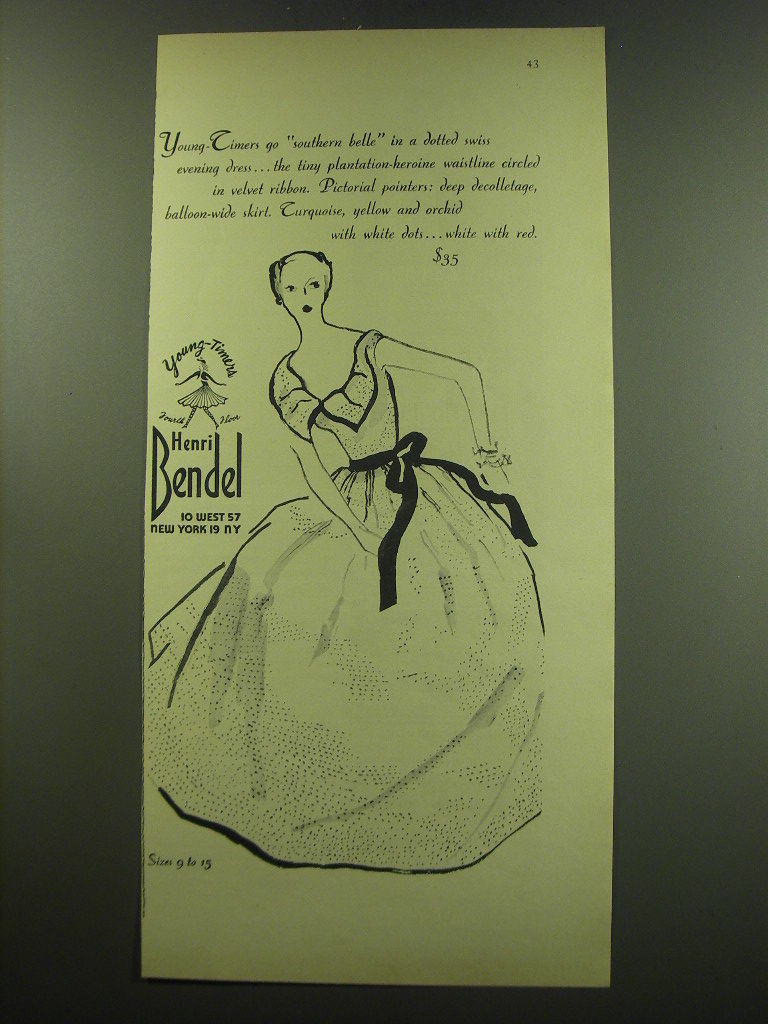 43
Young-Timers go "southern belle" in a dotted swiss
evening dress...the tiny plantation-heroine waistline circled
in velvet ribbon. Pictorial pointers: deep decolletage,
balloon-wide skirt. Turquoise, yellow and orchid
with white dots...white with red.
$35
Young-Timers
Fourth Floor
Henri
Bendel
10 WEST 57
NEW YORK 19 NY
Sizes 9 to 15